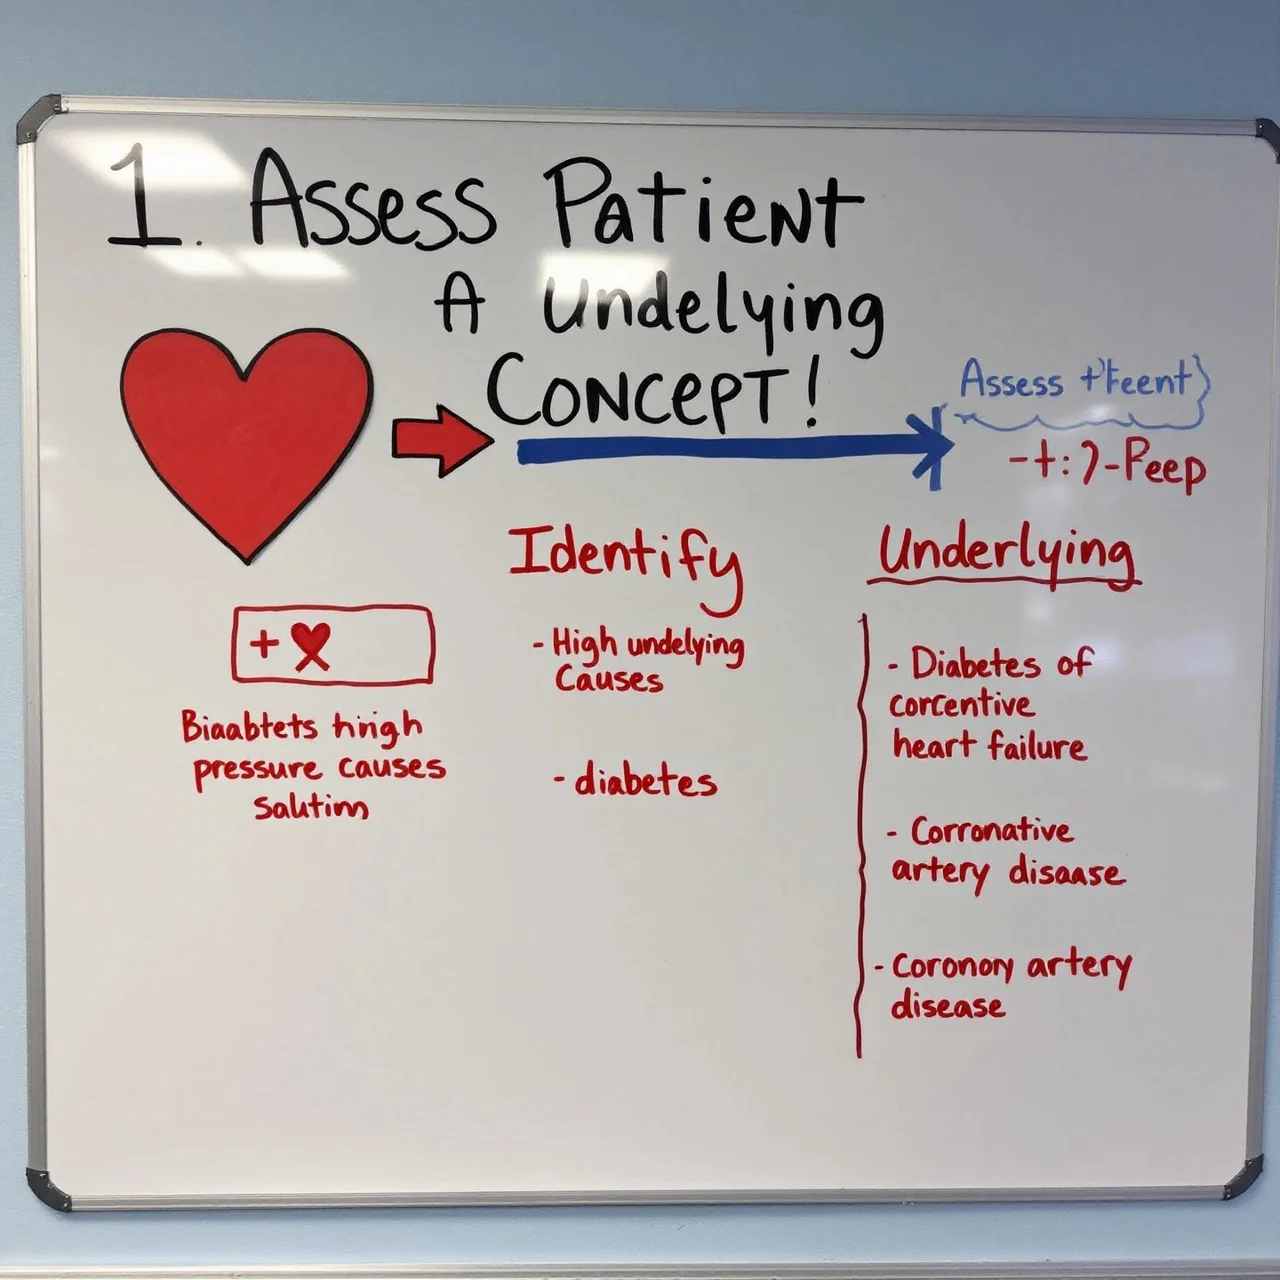 1. Assess Patient
A Undelying
CONCEPT!
Assess
-Peep
Identify
- High undelying
Causes
- diabetes
Underlying
- Diabetes of
corcentive
heart failure
- Corronative
artery disaase
- Coronory artery
disease
+
Biaabtets hingh
pressure causes